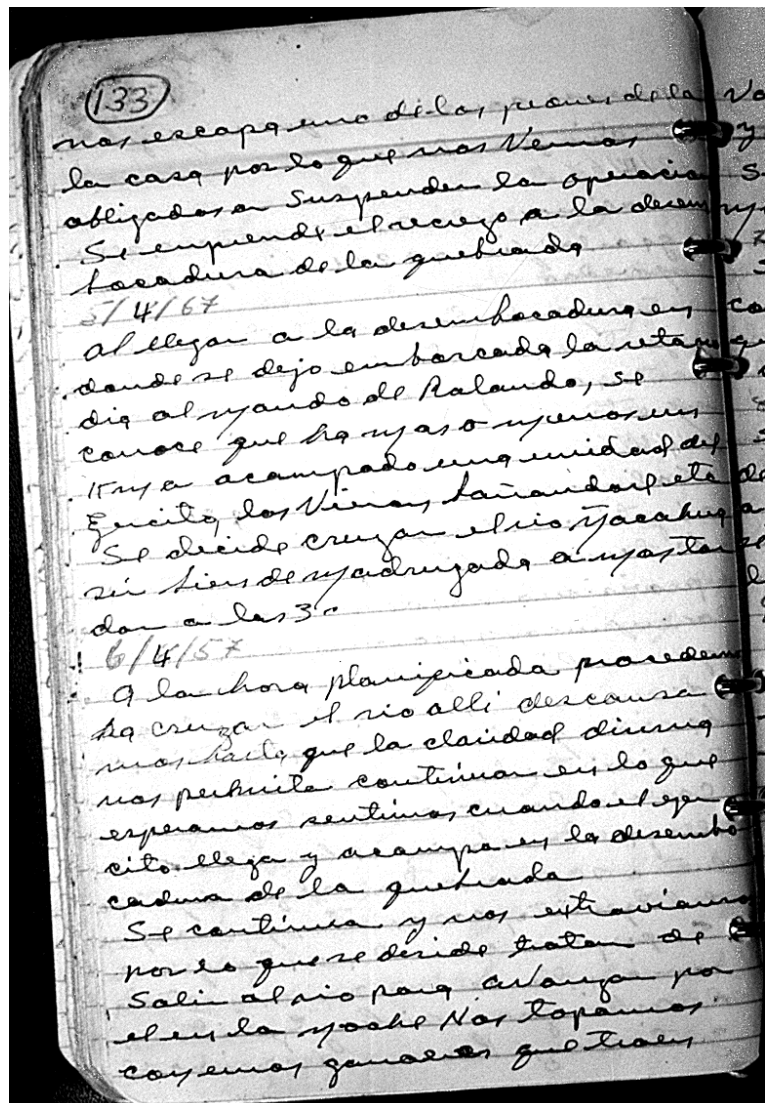 133
nos escapa uno de los peones de la
la casa por lo que nos vemos
obligados a Suspender la operacion
Se emprende el recrezo a la desem
bocadura de la quebrada
5/4/67
Al llegar a la desembocadura en
donde se dejo emboscada la retaguar
dia al mando de Rolando, se
conoce que ha mas o menos un
Km a acampado una unidad del
Ejercito, los Vieron bañandose etc
Se decide cruzar el rio Ñacahua
sin bien de madrugada a mas tar
dar a las 3.
6/4/57
A la hora planificada procedemos
ha cruzar el rio alli descansa
mos hasta que la claridad
nos permita continuar en lo que
esperamos sentimos cuando el eger
cito llega y acampa en la desembo
cadura de la quebrada
Se continua y nos extraviamos
por lo que se deside tratar de
Salir al rio para avanzar por
el en la noche Nos topamos
con unos ganaderos que traen